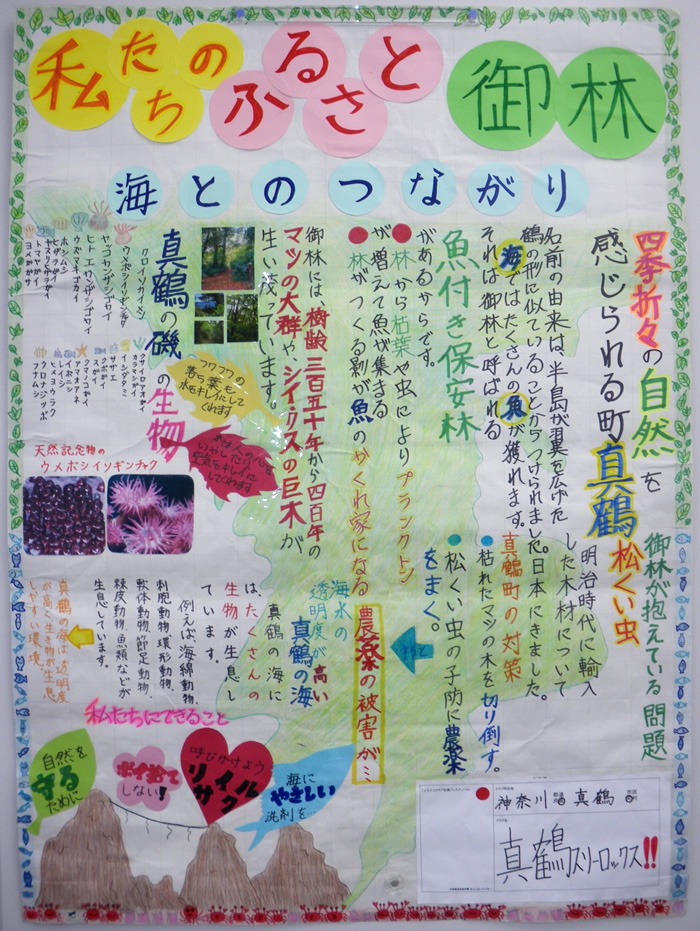 私たちのふるさと 御林
海とのつながり
四季折々の自然を
感じられる町真鶴
名前の由来は、半島が翼を広げた
鶴の形に似ていることからつけられました。
海ではたくさんの魚が獲れます。
それは御林と呼ばれる
魚付き保安林
があるからです。
●林から枯葉や虫によりプランクトン
が増えて魚が集まる
●林がつくる影が魚のかくれ家になる
御林には、樹齢三百五十年から四百年の
マツの大群や、シイ、クスの巨木が
生い茂っています。
フワフワの
落ち葉も
水をキレイにして
くれます
木は人の心を
いやしたり
空気をキレイに
してくれます
真鶴の磯の生物
クロイソカイメン
ウメボシイソギンチャク
ヒトエカンザシゴカイ
ウズマキゴカイ
ホシムシ
ヒザラガイ
トマヤガイ
ヨメガカサ
クサイロアオガイ
カラマツガイ
イシダタミ
サザエ
スガイ
アマオブネ
イボニシ
ヒメヨウラク
クロヘリアメフラシ
フナムシ
天然記念物の
ウメボシイソギンチャク
御林が抱えている問題
松くい虫
明治時代に輸入
した木材について
日本にきました。
真鶴町の対策
●枯れたマツの木を切り倒す。
●松くい虫の予防に農薬
をまく。
すると
農薬の被害が…
海水の
透明度が高い
真鶴の海
真鶴の海に
は、たくさんの
生物が生息し
ています。
例えば、海綿動物、
刺胞動物、環形動物、
軟体動物、節足動物、
棘皮動物、魚類などが
生息しています。
真鶴の海は透明度
が高く、生き物が生息
しやすい環境。
私たちにできること
自然を
守る
ために
ポイ捨て
しない!
呼びかけよう
リサイクル
海に
やさしい
洗剤を…
神奈川県 真鶴町
真鶴スリーロックス!!